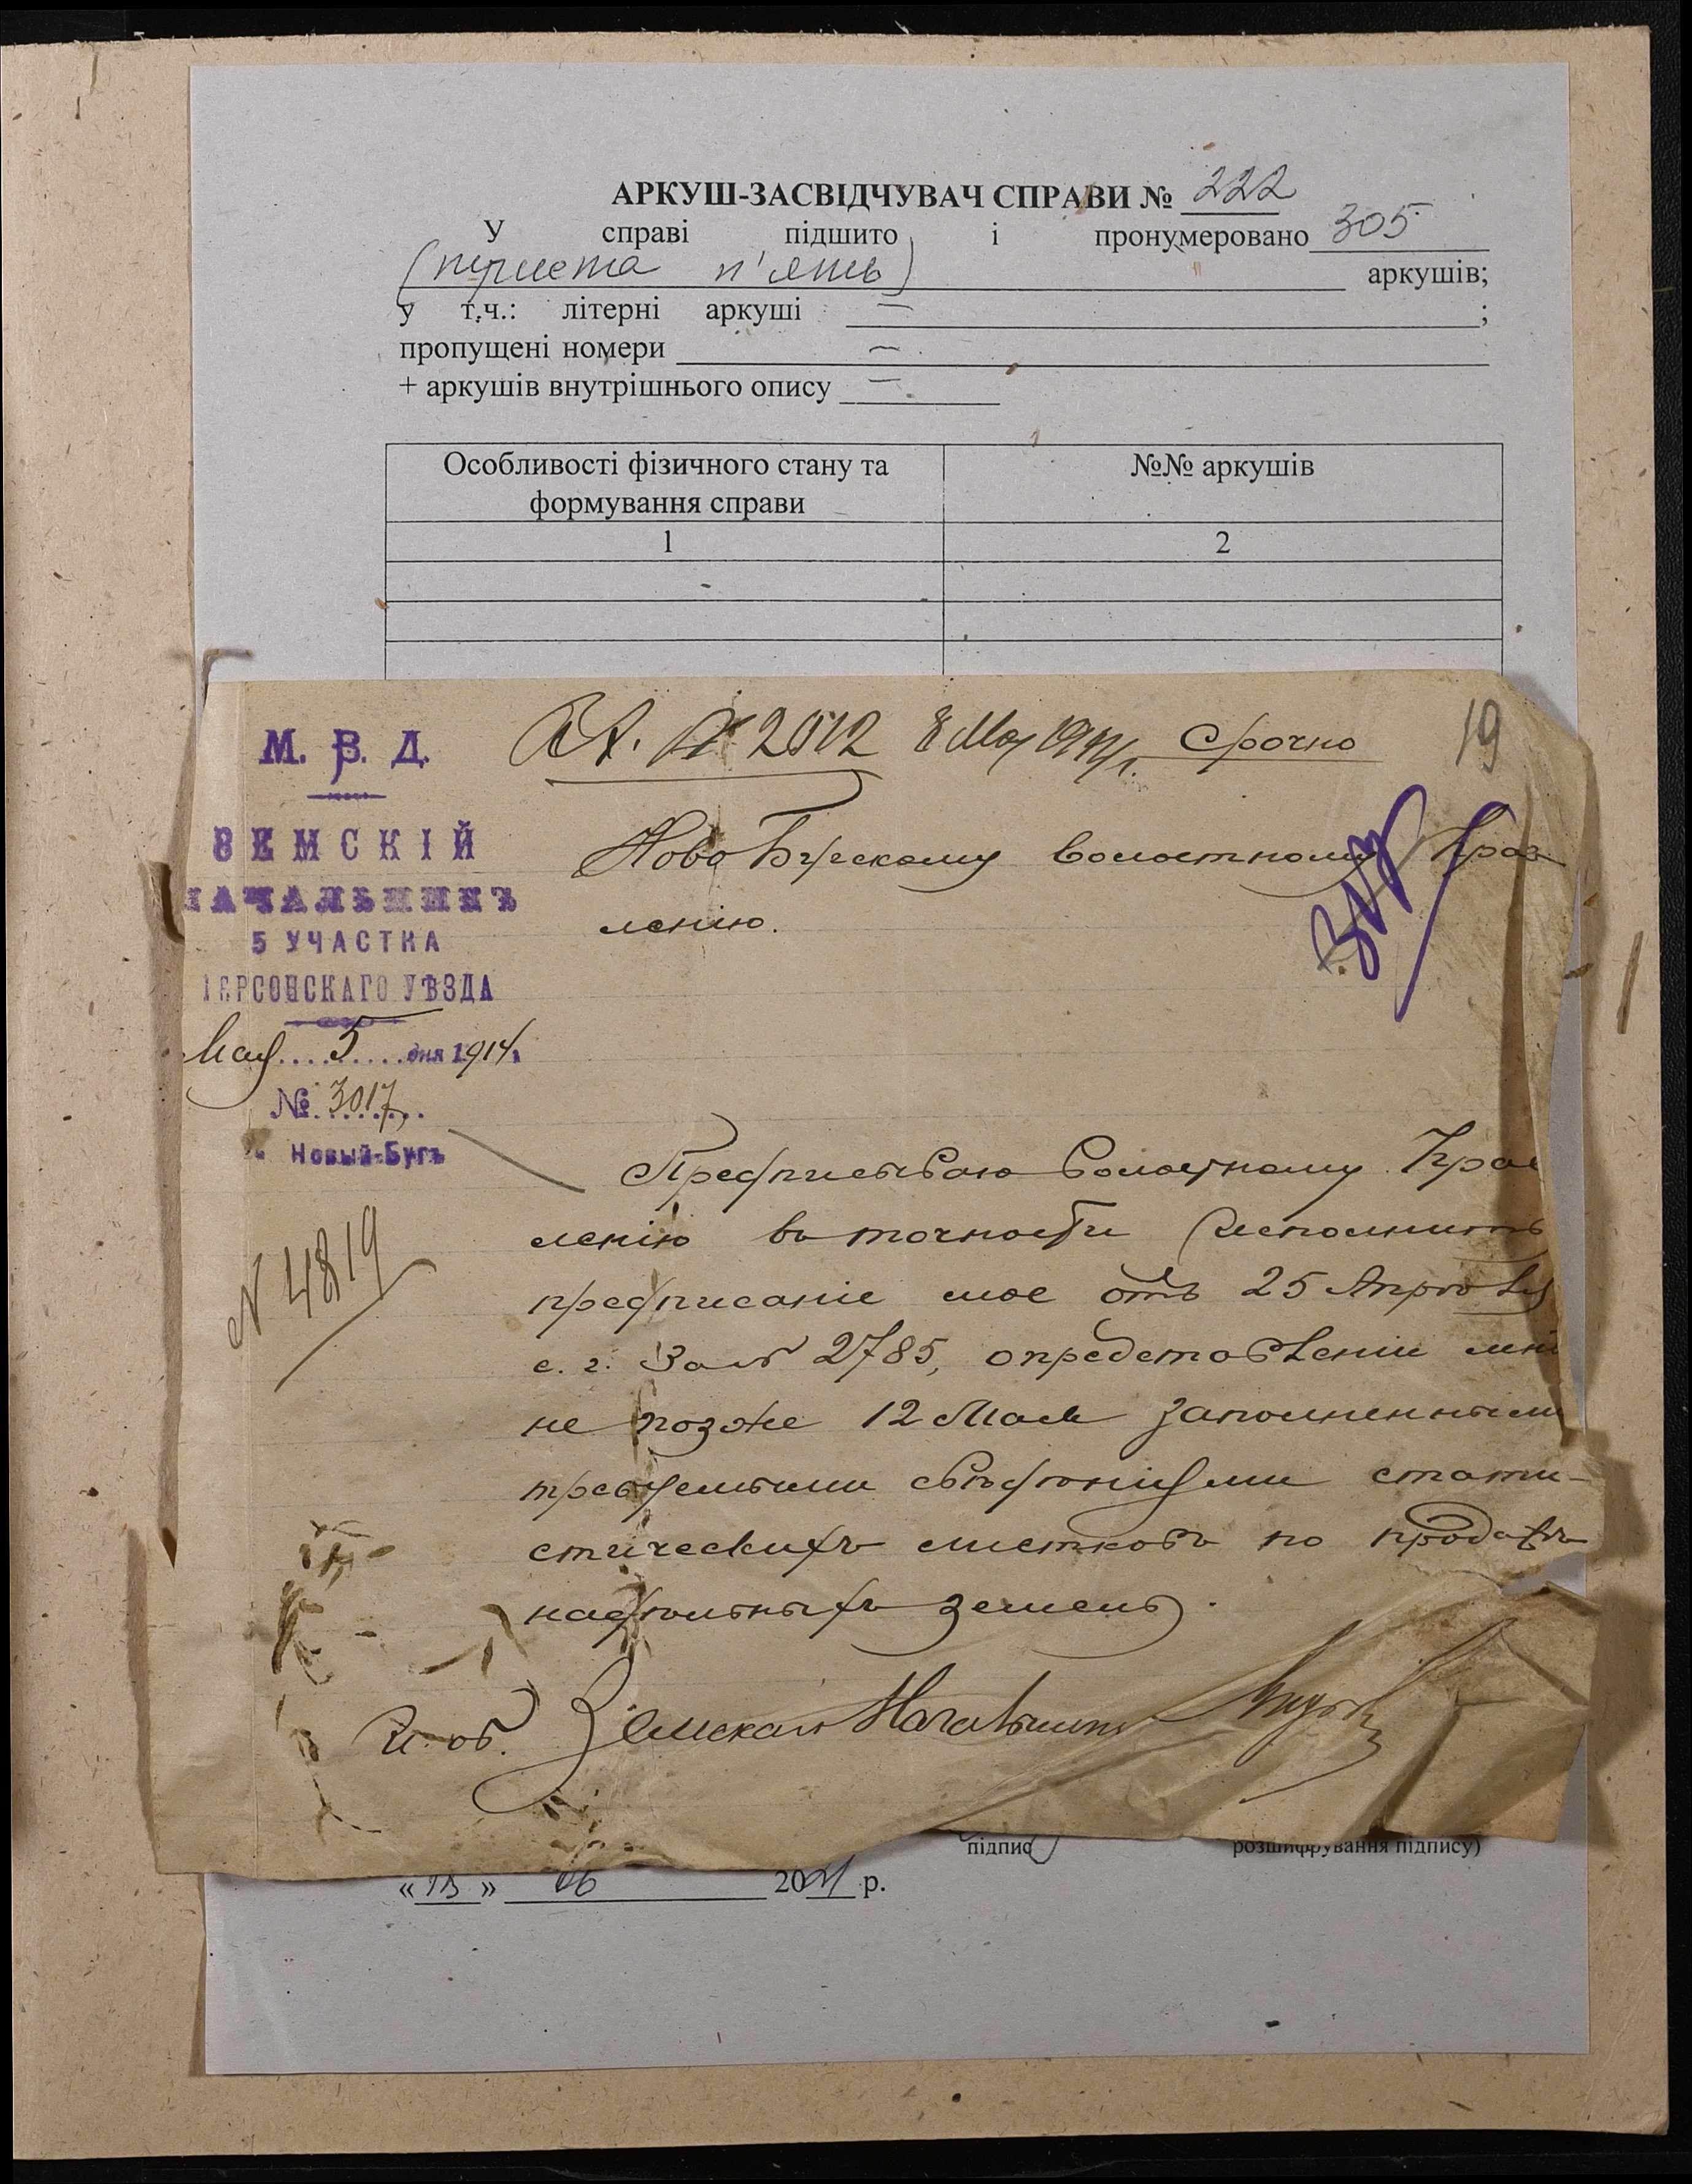 АРКУШ-ЗАСВІДЧУВАЧ СПРАВИ № 222
У справі підшито і пронумеровано 305
(триста п'ять) аркушів;
у т.ч.: літерні аркуші — ;
пропущені номери —
+ аркушів внутрішнього опису —
Особливості фізичного стану та формування справи
№№ аркушів
1
2
М. В. Д.
ЗЕМСКІЙ
НАЧАЛЬНИКЪ
5 УЧАСТКА
ХЕРСОНСКАГО УѢЗДА
Мая 5 дня 1914
№ 3017
Новый-Бугъ
N 4819
№ 2512 8 Мая 1914 г. Срочно
19
Ново Бугскому Волостному Прав
ленію.
Предписываю Волостному Прав
ленію въ точности исполнить
предписаніе мое отъ 25 Апрѣля
с. г. за № 2785, о представленіи мнѣ
не позже 12 Мая заполненными
требуемыми свѣдѣніями стати-
стическихъ листковъ по продажѣ
надѣльныхъ земель.
И. об. Земскаго Начальника
підпис
розшифрування підпису)
« » 06 2021 р.